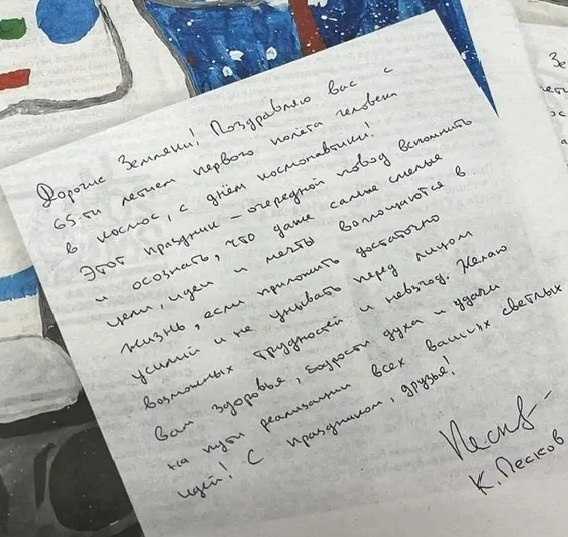 Дорогие Земляки! Поздравляю вас с
65-ти летием первого полёта человека
в космос, с днём космонавтики!
Этот праздник – очередной повод вспомнить
и осознать, что даже самые смелые
цели, идеи и мечты воплощаются в
жизнь, если приложить достаточно
усилий и не унывать перед лицом
возможных трудностей и невзгод. Желаю
вам здоровья, бодрости духа и удачи
на пути реализации всех ваших светлых
идей! С праздником, друзья!
Песков
К. Песков
Зе